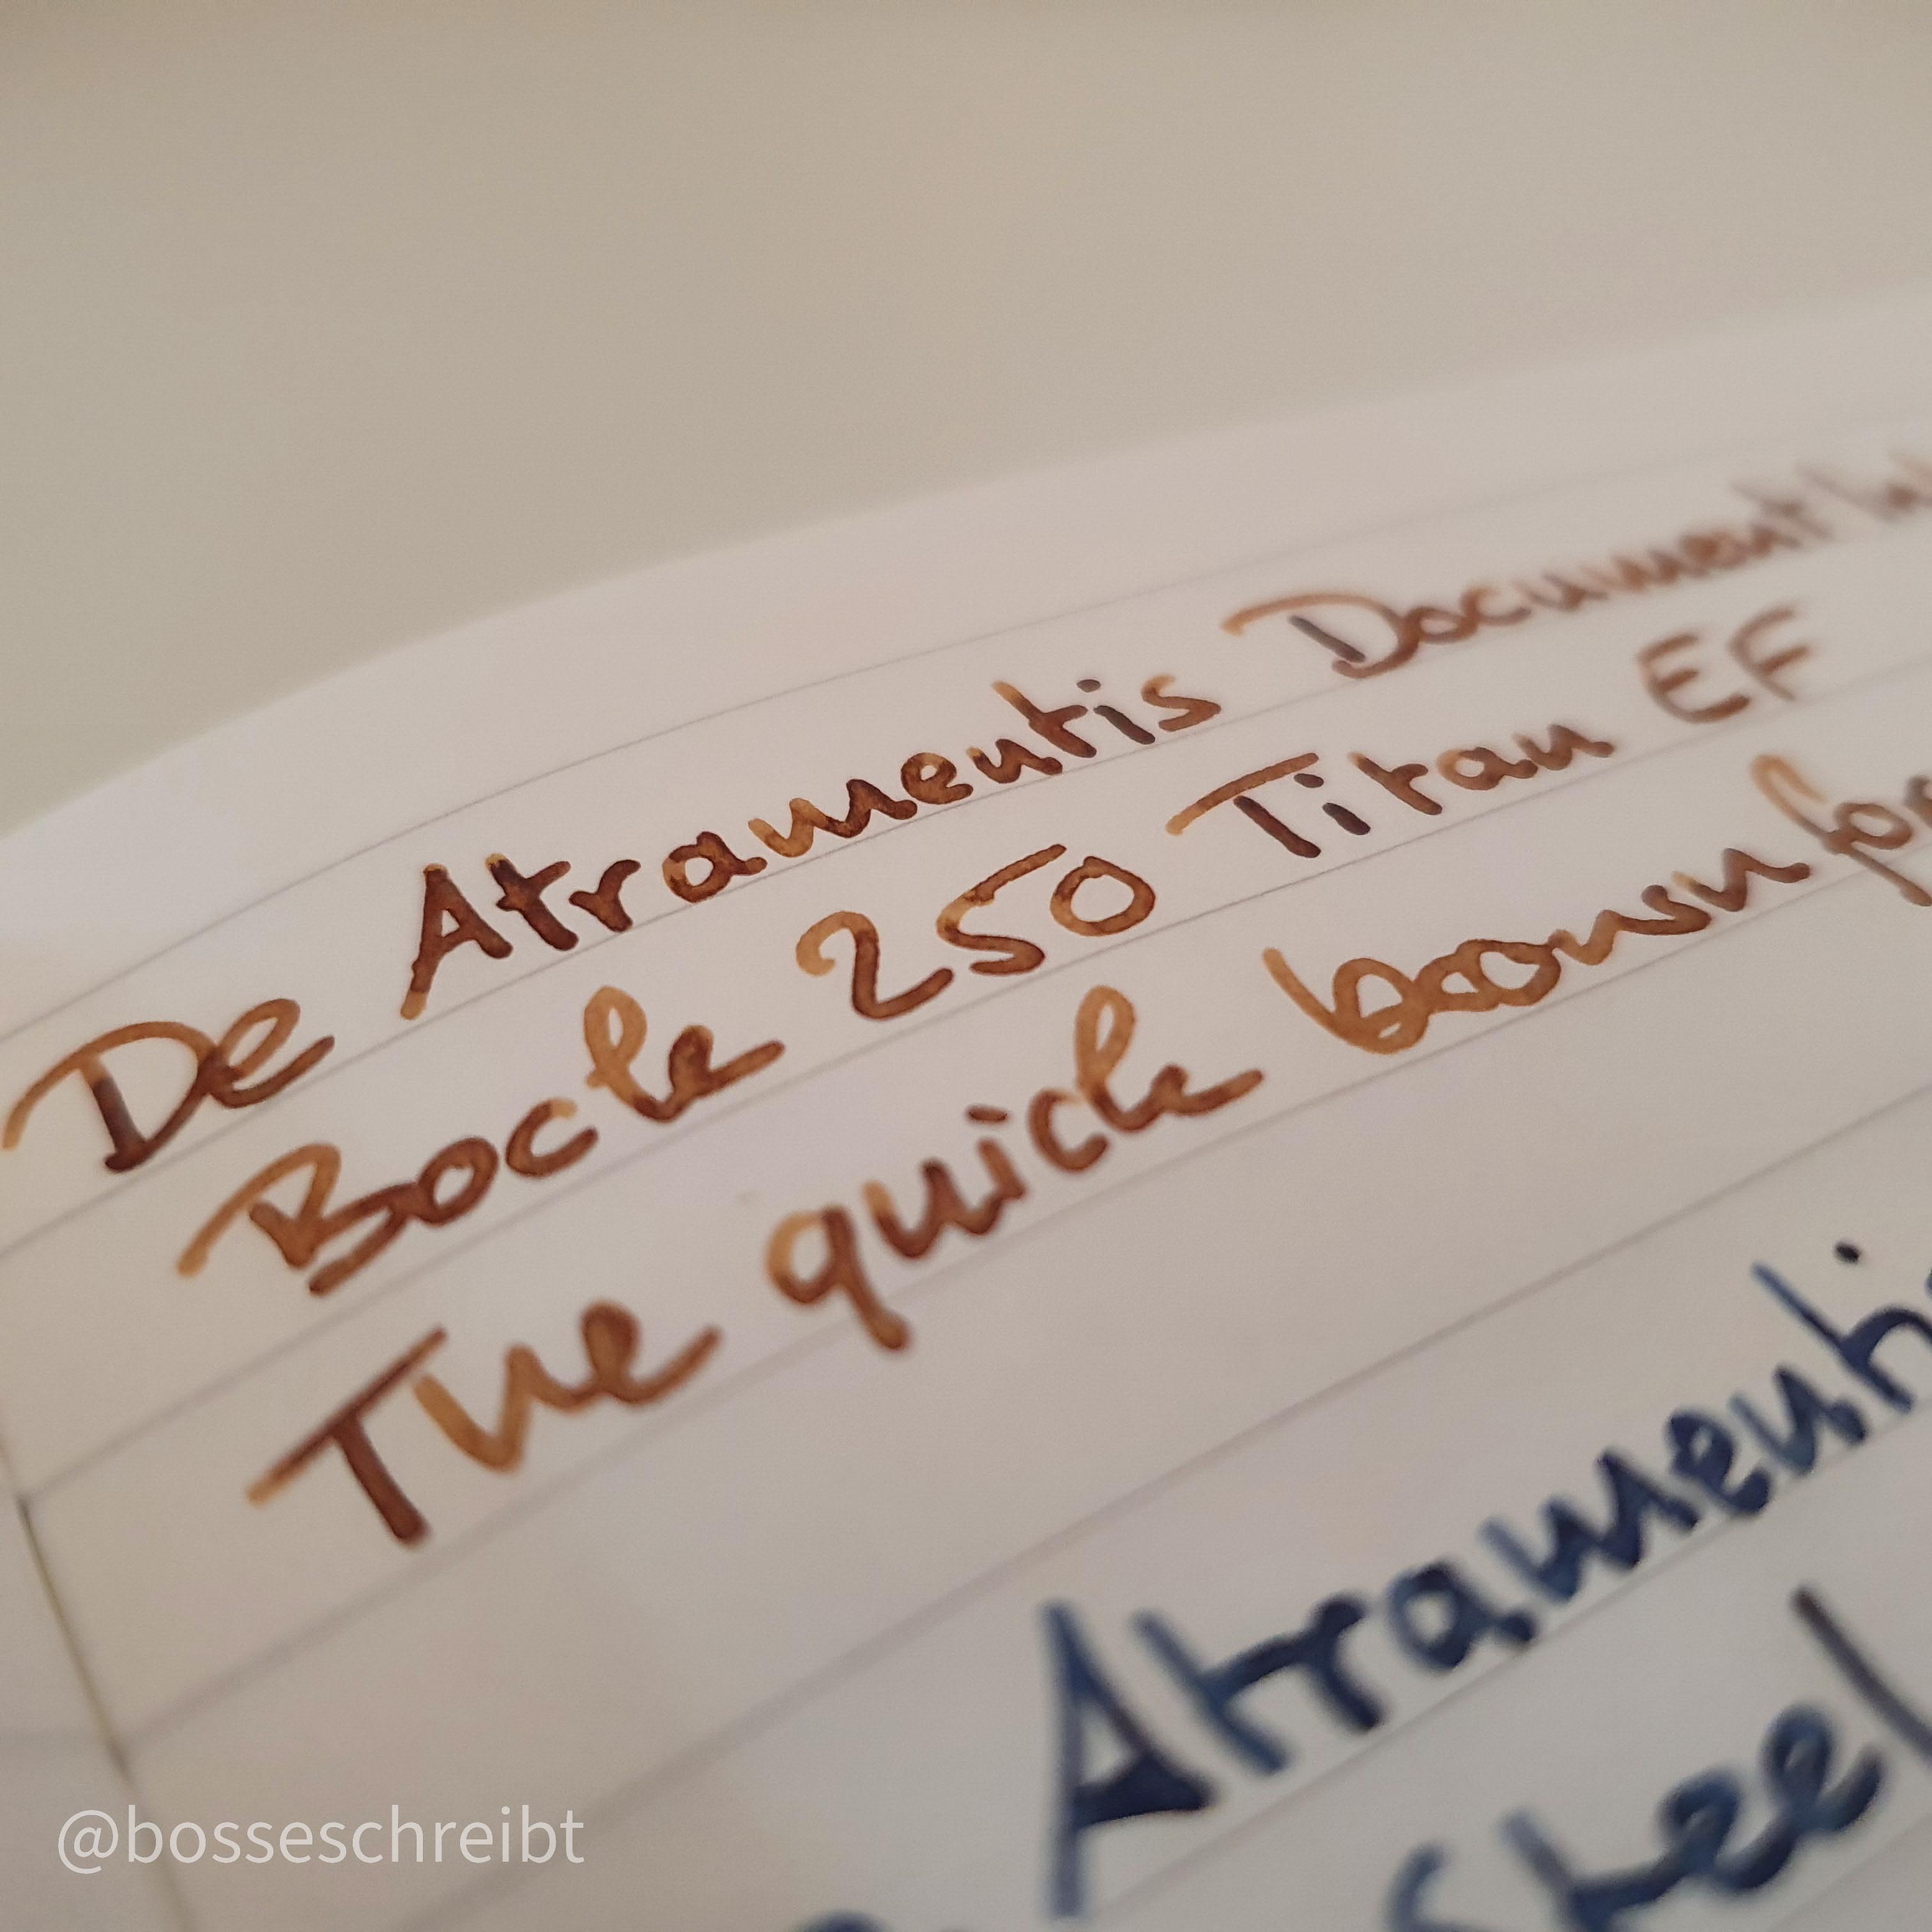 De Atramentis Document Ink
Bock 250 Titan EF
The quick bown for
Atramenti
Steel
@bosseschreibt